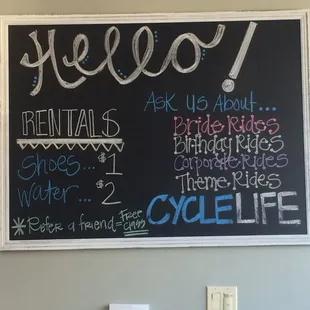 Hello!
RENTALS
Shoes... $1
Water... $2
* Refer a friend = Free Class
Ask us About...
Bride Rides
Birthday Rides
Corporate Rides
Theme Rides
CYCLELIFE